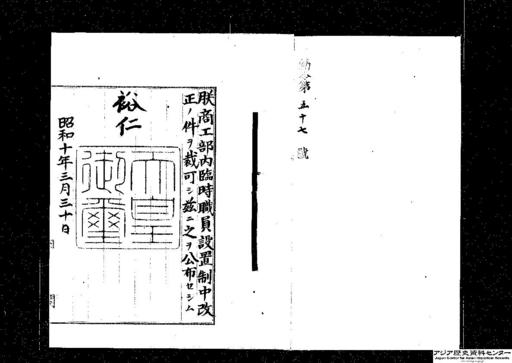 勅令第五十七號
朕商工部內臨時職員設置制中改
正ノ件ヲ裁可シ茲ニ之ヲ公布セシム
裕仁
天皇御璽
昭和十年三月三十日
アジア歴史資料センター
Japan Center for Asian Historical Records